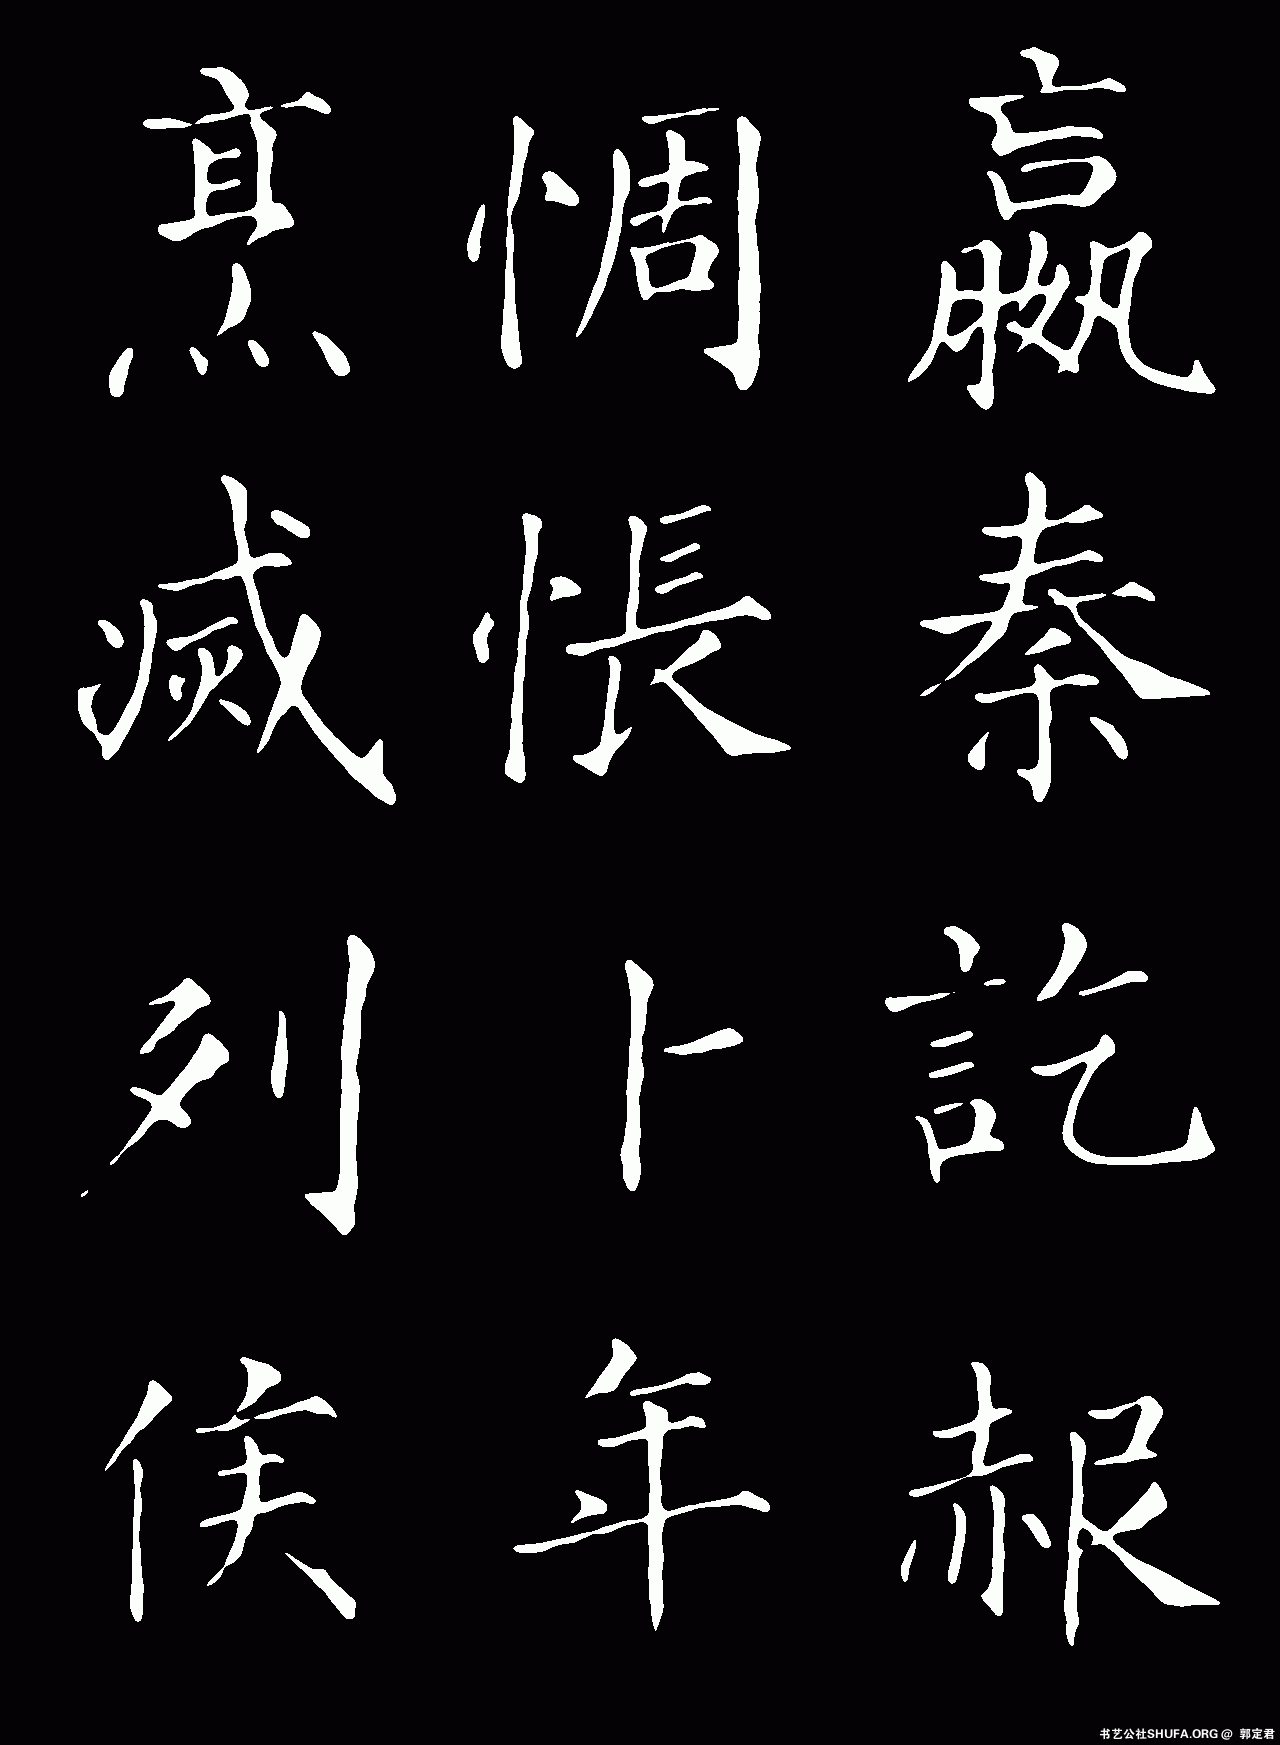 嬴秦訖赧
惆悵卜年
烹滅列侯
书艺公社SHUFA.ORG @ 郭定君